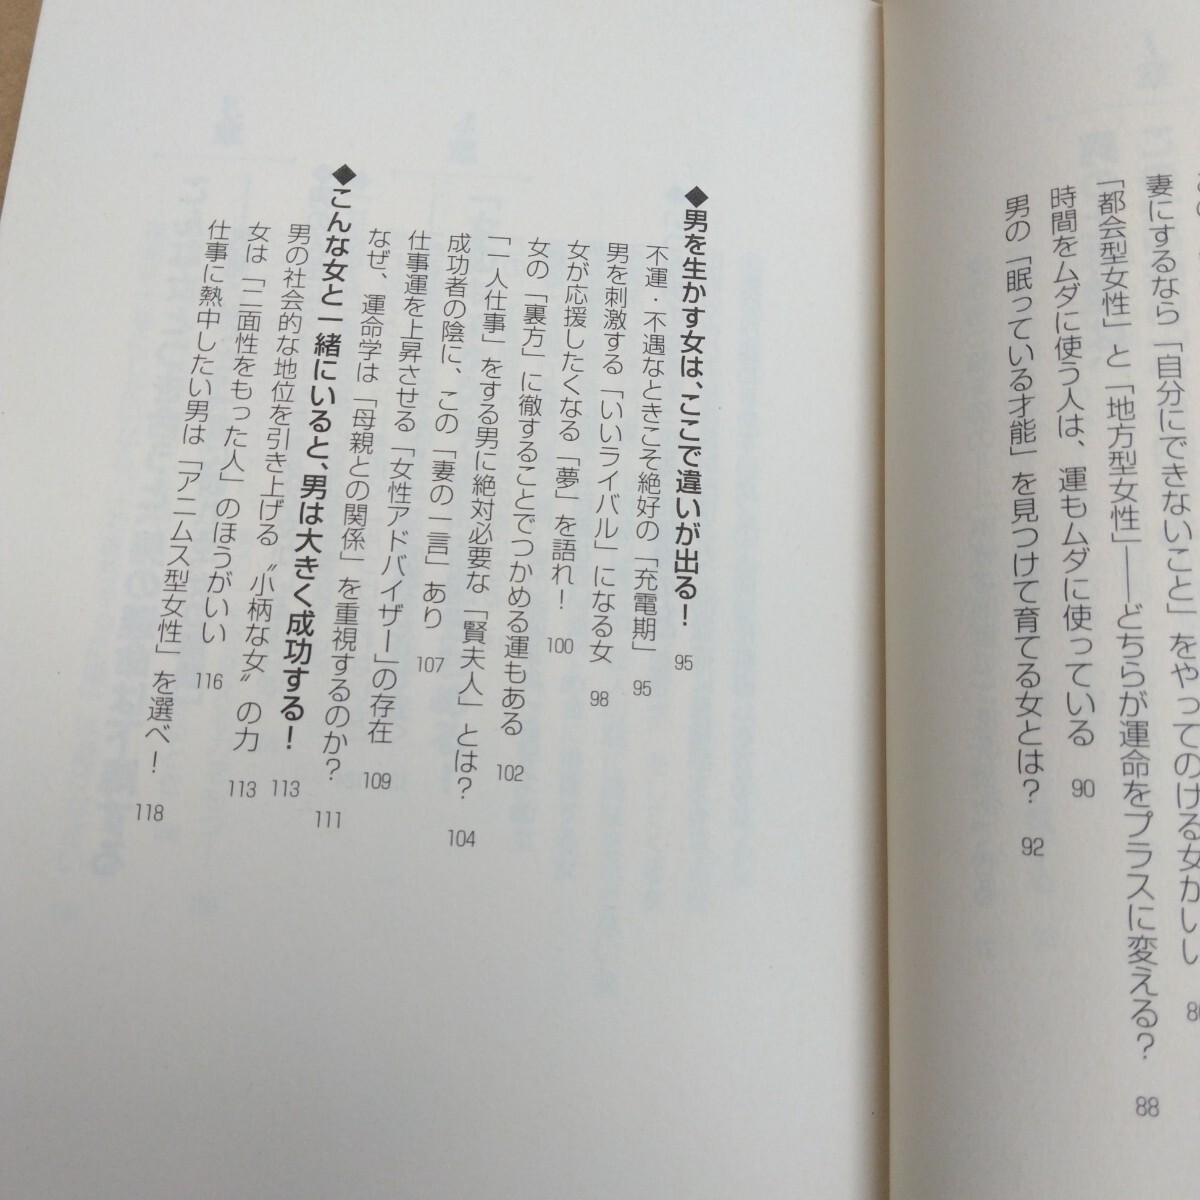 妻にするなら「自分にできないこと」をやってのける女がいい
「都会型女性」と「地方型女性」――どちらが運命をプラスに変える？ 88
時間をムダに使う人は、運もムダに使っている 90
男の「眠っている才能」を見つけて育てる女とは？ 92
◆男を生かす女は、ここで違いが出る！ 95
不運・不遇なときこそ絶好の「充電期」 95
男を刺激する「いいライバル」になる女 98
女が応援したくなる「夢」を語れ！ 100
女の「裏方」に徹することでつかめる運もある 102
「一人仕事」をする男に絶対必要な「賢夫人」とは？ 104
成功者の陰に、この「妻の一言」あり 107
仕事運を上昇させる「女性アドバイザー」の存在 109
なぜ、運命学は「母親との関係」を重視するのか？ 111
◆こんな女と一緒にいると、男は大きく成功する！ 113
男の社会的な地位を引き上げる〝小柄な女〟の力 113
女は「二面性をもった人」のほうがいい 116
仕事に熱中したい男は「アニムス型女性」を選べ！ 118